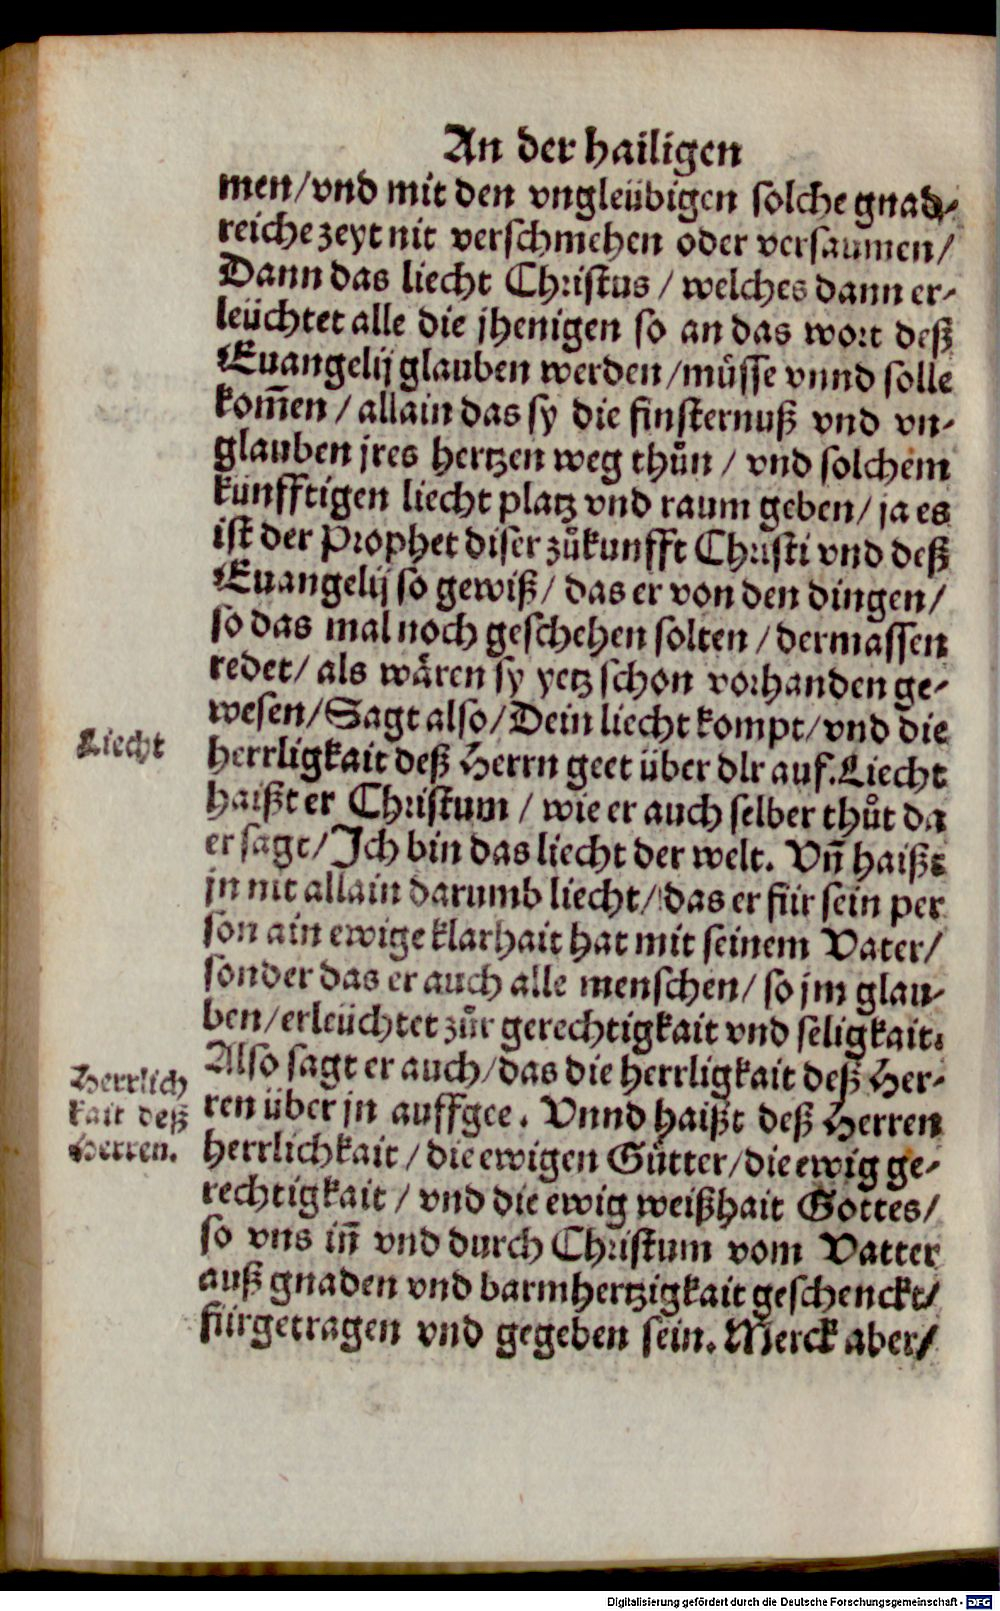 An der hailigen
men/vnd mit den vngleübigen solche gnad-
reiche zeyt nit verschmehen oder versaumen/
Dann das liecht Christus / welches dann er-
leüchtet alle die jhenigen so an das wort deß
Euangelij glauben werden/müsse vnnd solle
kom̃en / allain das sy die finsternuß vnd vn-
glauben jres hertzen weg thůn / vnd solchem
kunfftigen liecht platz vnd raum geben/ ja es
ist der Prophet diser zůkunfft Christi vnd deß
Euangelij so gewiß/ das er von den dingen/
so das mal noch geschehen solten / dermassen
redet/ als wären sy yetz schon vorhanden ge-
wesen/Sagt also/Dein liecht kompt/vnd die
Liecht
herrligkait deß Herrn geet über dir auf. Liecht
haißt er Christum / wie er auch selber thůt da
er sagt/Ich bin das liecht der welt. Vñ haißt
jn nit allain darumb liecht/ das er für sein per
son ain ewige klarhait hat mit seinem Vater/
sonder das er auch alle menschen/ so jm glau-
ben/erleüchtet zůr gerechtigkait vnd seligkait.
Also sagt er auch/das die herrligkait deß Her-
ren über jn auffgee. Vnnd haißt deß Herren
herrlichkait / die ewigen Gütter/die ewig ge-
Herrlich
kait deß
Herren.
rechtigkait / vnd die ewig weißhait Gottes/
so vns iñ vnd durch Christum vom Vatter
auß gnaden vnd barmhertzigkait geschenckt/
fürgetragen vnd gegeben sein. Merck aber/
Digitalisierung gefördert durch die Deutsche Forschungsgemeinschaft - DFG